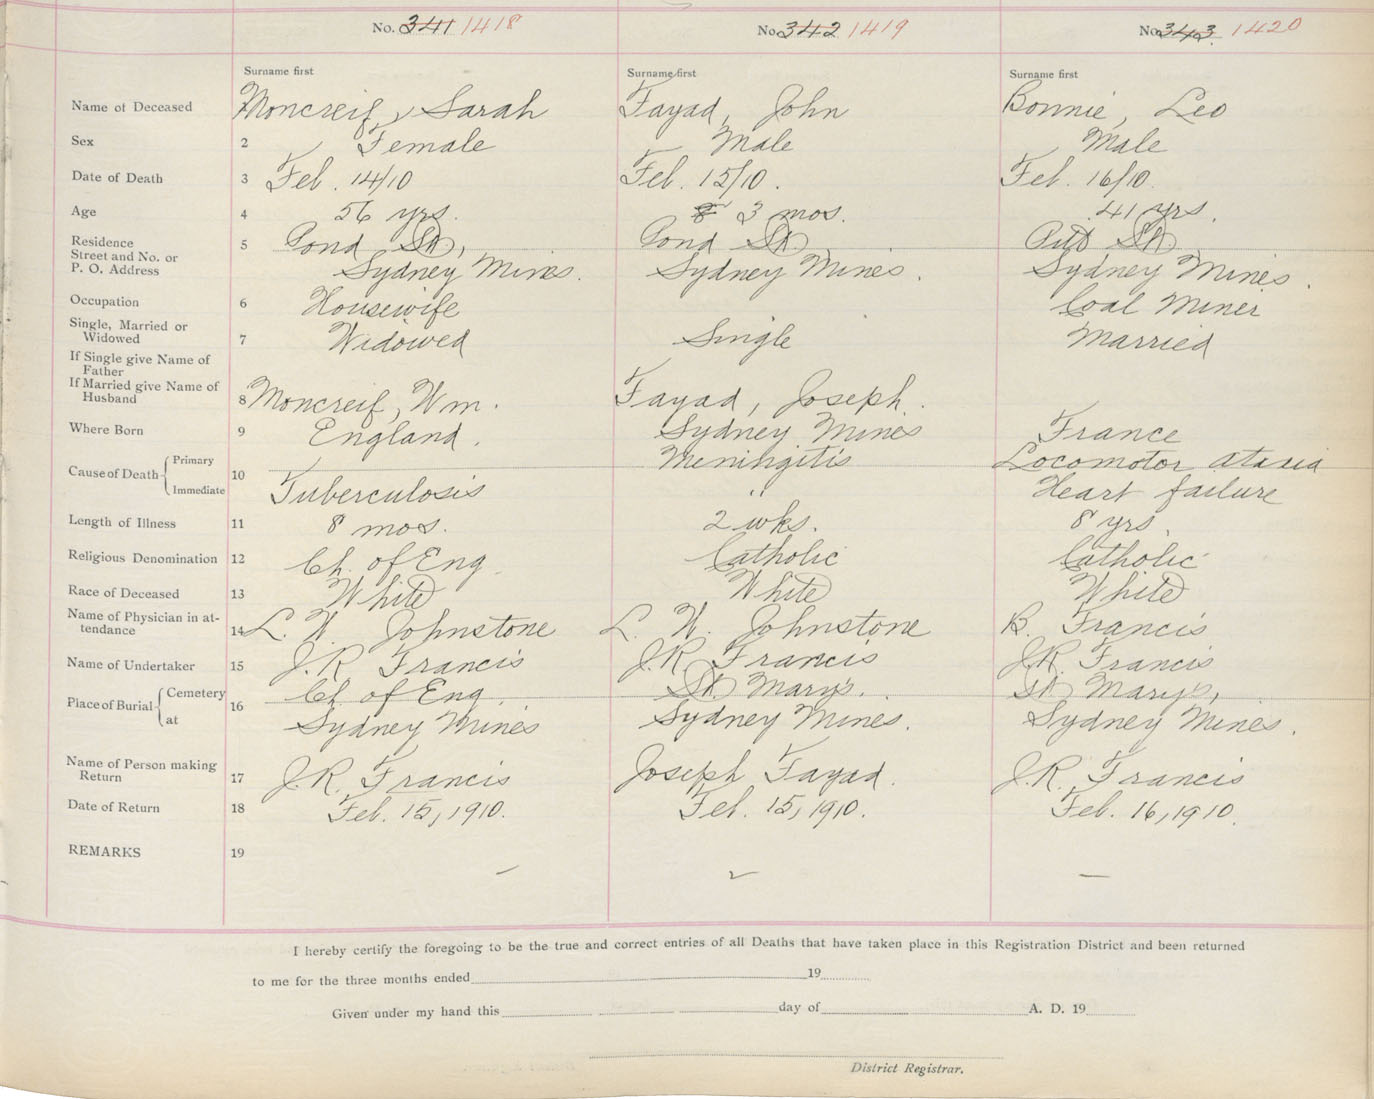 No. 341 1418 No. 342 1419 No. 343. 1420
Surname first Surname first Surname first
Name of Deceased Moncreif, Sarah Fayad, John Bonnie, Leo
Sex 2 Female Male Male
Date of Death 3 Feb. 14/10 Feb. 15/10. Feb. 16/10.
Age 4 56 yrs. 3 mos. 41 yrs.
Residence 5 Pond St, Pond St, Pitt St
Street and No. or
P. O. Address Sydney Mines. Sydney Mines. Sydney Mines.
Occupation 6 Housewife Coal Miner
Single, Married or
Widowed 7 Widowed Single Married
If Single give Name of
Father
If Married give Name of
Husband 8 Moncreif, Wm. Fayad, Joseph.
Where Born 9 England. Sydney Mines France
Cause of Death 10 Primary Meningitis Locomotor ataxia
Immediate Tuberculosis " Heart failure
Length of Illness 11 8 mos. 2 wks. 8 yrs.
Religious Denomination 12 Ch. of Eng. Catholic Catholic
Race of Deceased 13 White White White
Name of Physician in at-
tendance 14 L. W. Johnstone L. W. Johnstone B. Francis
Name of Undertaker 15 J.R. Francis J.R. Francis J.R. Francis
Place of Burial 16 Cemetery Ch. of Eng. St. Mary's. St. Mary's,
at Sydney Mines Sydney Mines. Sydney Mines.
Name of Person making
Return 17 J.R. Francis Joseph Fayad. J.R. Francis
Date of Return 18 Feb. 15, 1910. Feb. 15, 1910. Feb. 16, 1910.
REMARKS 19
I hereby certify the foregoing to be the true and correct entries of all Deaths that have taken place in this Registration District and been returned
to me for the three months ended 19
Given under my hand this day of A. D. 19
District Registrar.